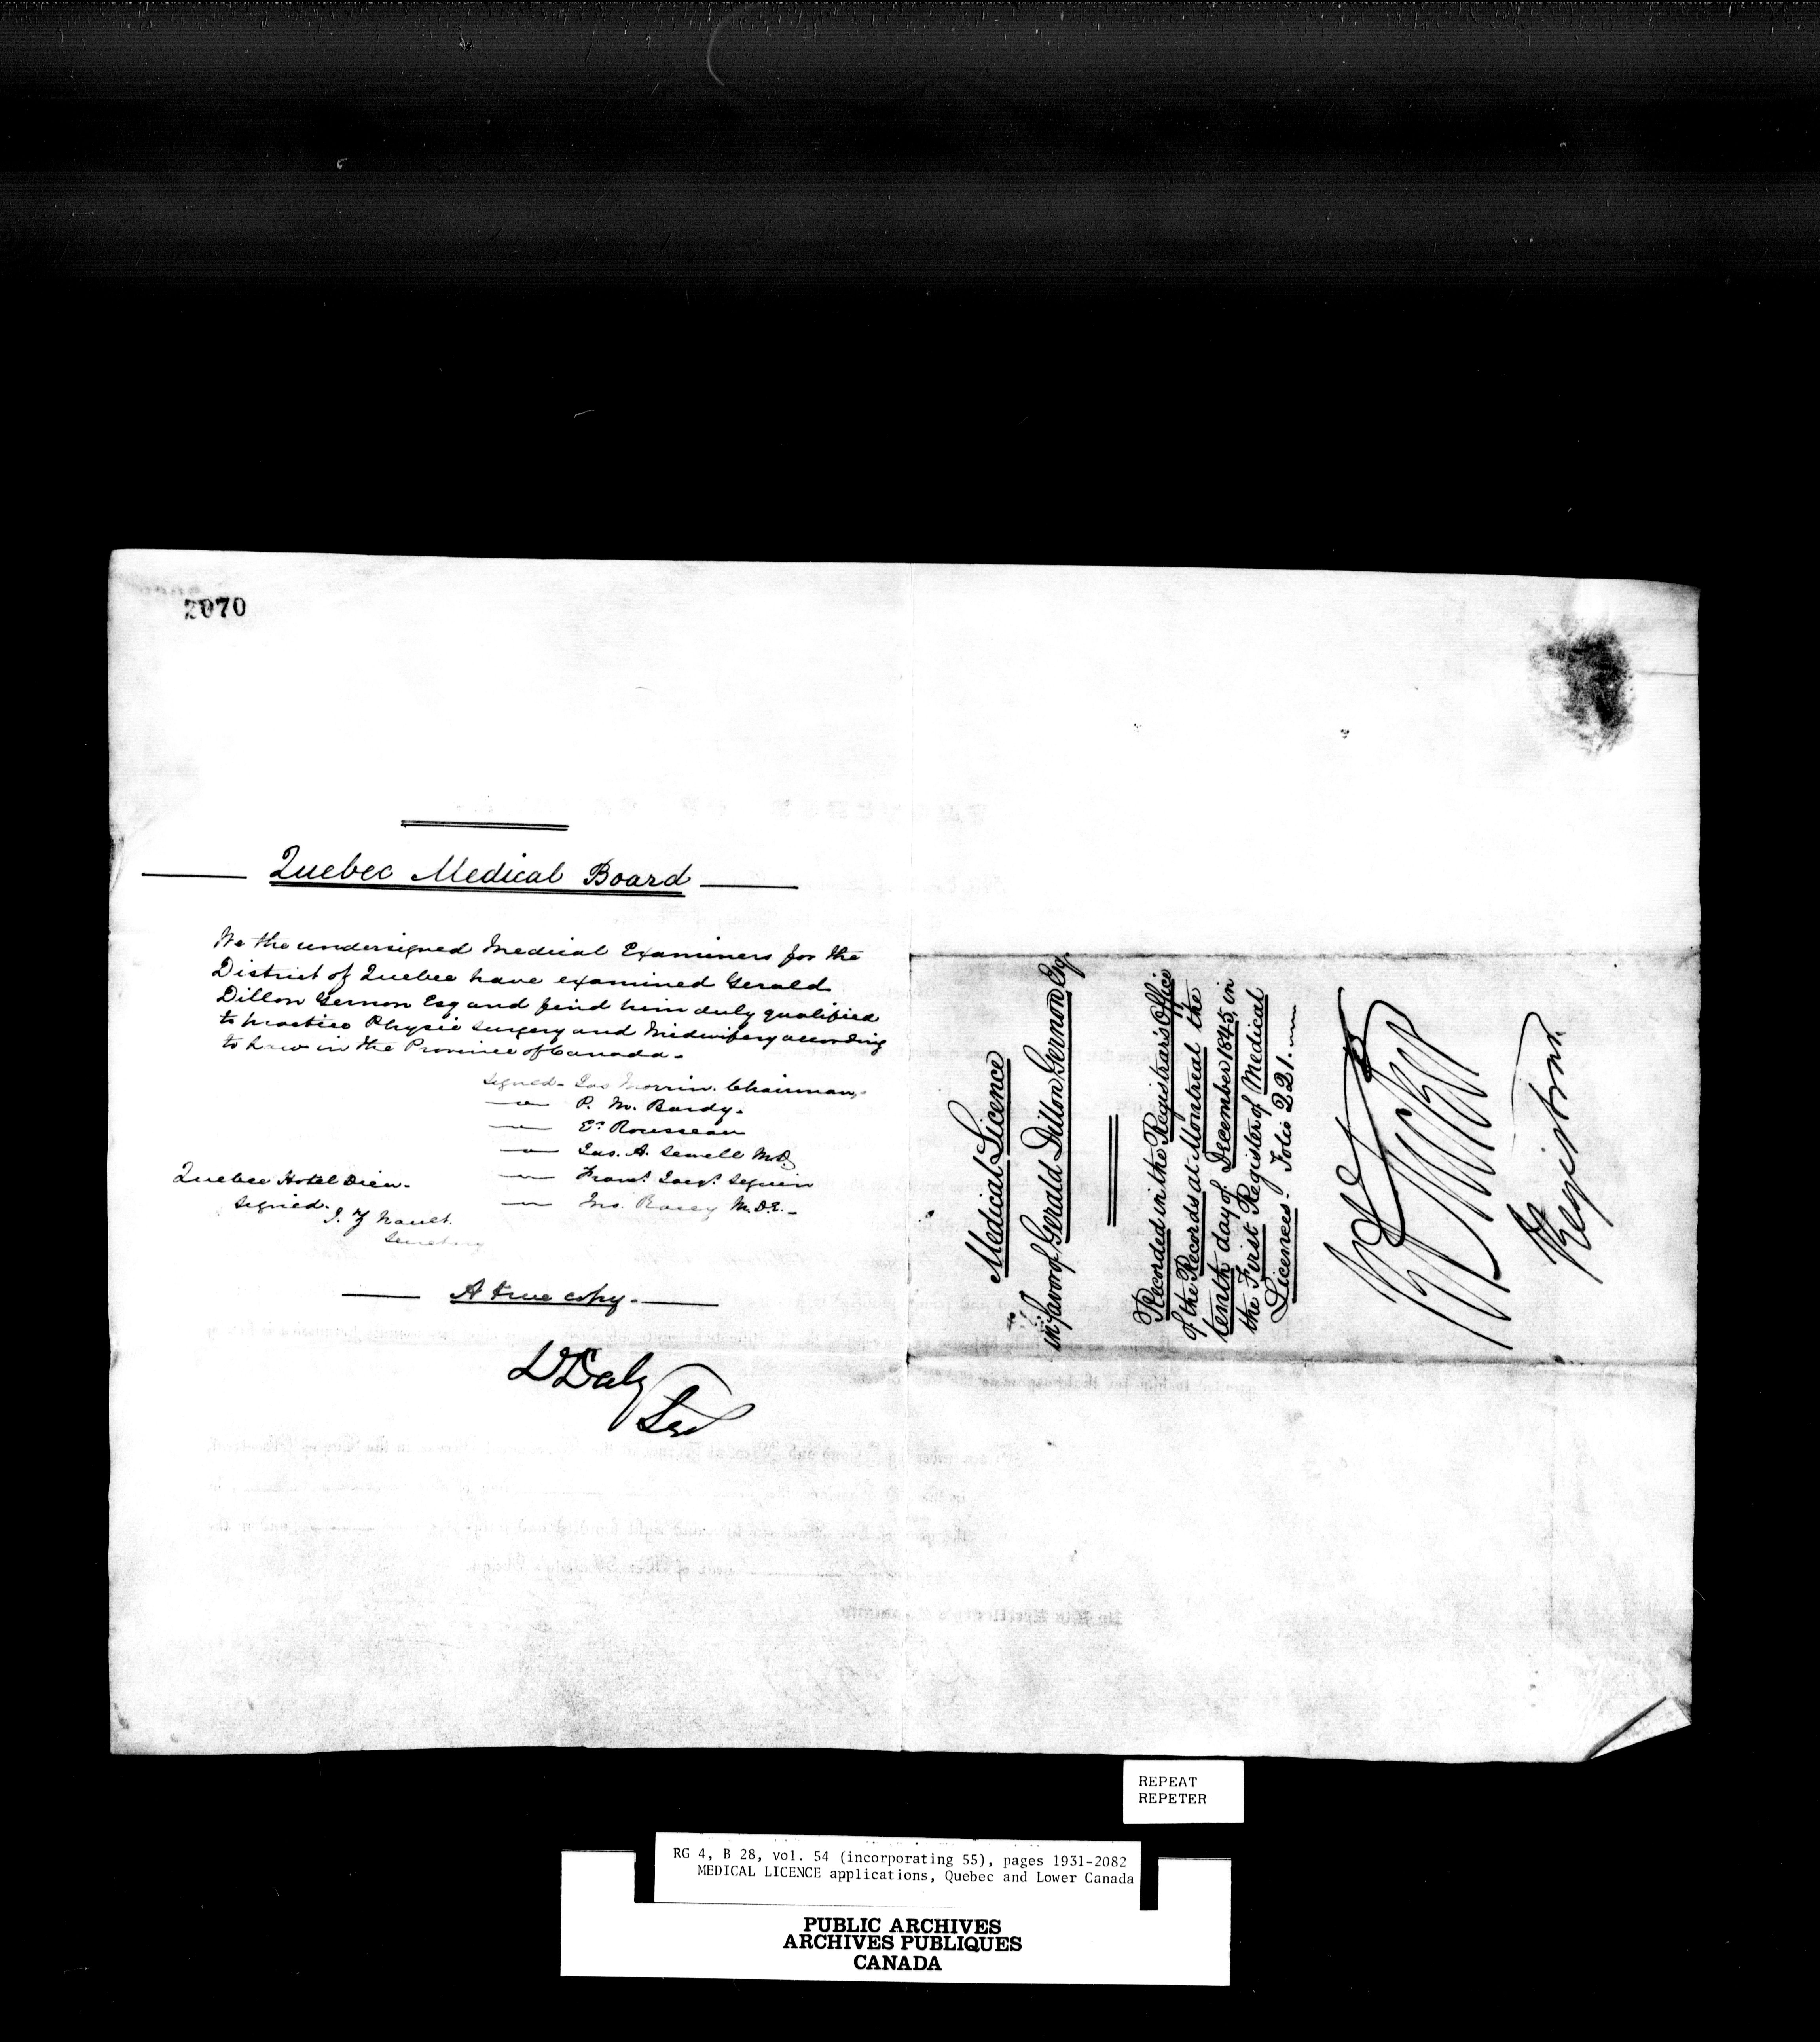 2070
Quebec Medical Board
We the undersigned Medical Examiners for the
District of Quebec have examined Gerald
Dillon Gernon Esq and find him duly qualified
to practice Physic Surgery and Midwifery according
to Law in the Province of Canada.
Signed - Jas Morrin. Chairman.
P. M. Bardy.
Ed. Rousseau
Jas. A. Sewell M.D.
Frans. Jacqs. Seguin
Jno. Racey M.D.E.
Quebec Hotel Dieu.
Signed.
J. Z Nault.
Secretary
A true copy.
D Daly
Sec
Medical Licence
in favor of Gerald Dillon Gernon Esq.
Recorded in the Registrar's Office
of the Records at Montreal the
tenth day of December 1845, in
the First Register of Medical
Licences. Folio 221.
Registrar.
REPEAT
REPETER
RG 4, B 28, vol. 54 (incorporating 55), pages 1931-2082
MEDICAL LICENCE applications, Quebec and Lower Canada
PUBLIC ARCHIVES
ARCHIVES PUBLIQUES
CANADA